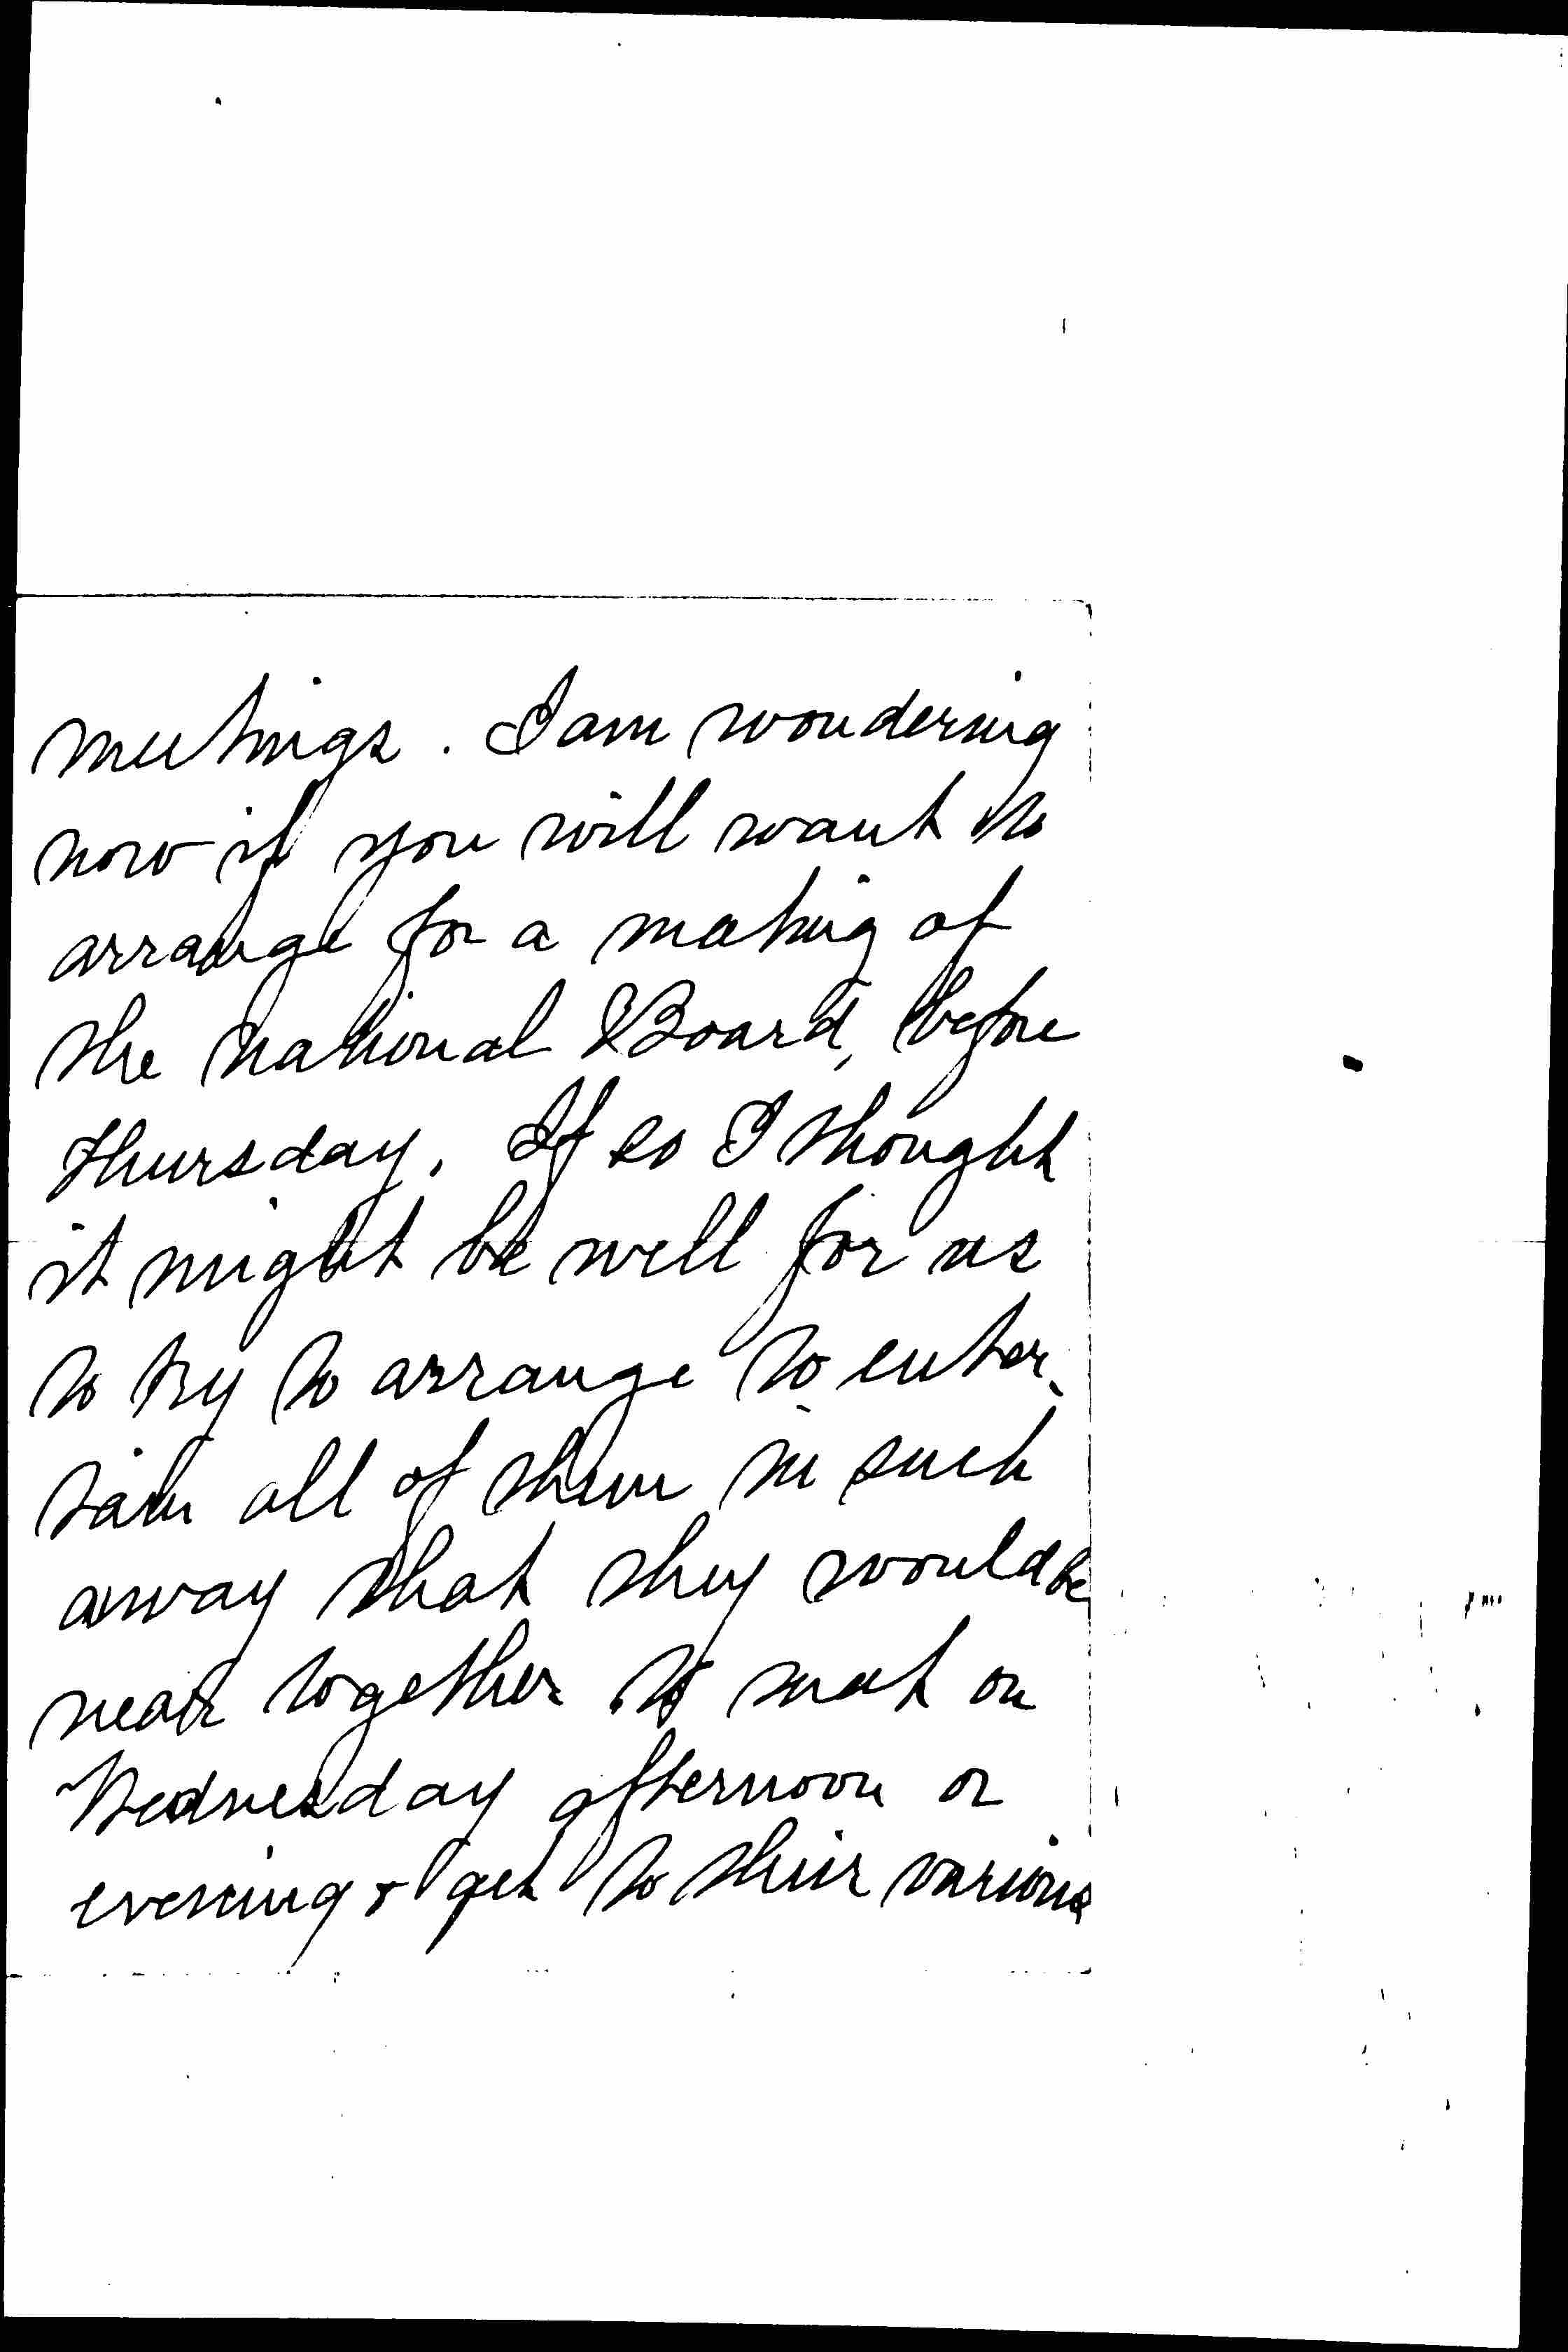 meetings. I am wondering
now if you will want to
arrange for a meeting of
the National Board, before
Thursday. If so I thought
it might be well for us
to try to arrange to enter-
tain all of them in such
away that they would be
near together to meet on
Wednesday afternoon or
evening & get to their various